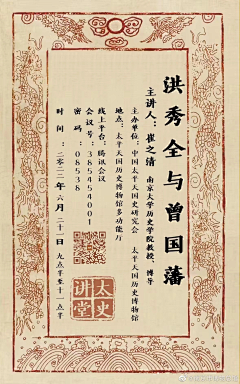 洪秀全与曾国藩
主讲人：崔之清 南京大学历史学院教授、博导
主办单位：中国太平天国史研究会 太平天国历史博物馆
地点：太平天国历史博物馆多功能厅
线上平台：腾讯会议
会议号：385454001
密码：08538
时间：二〇二二年六月二十一日 九点半至十一点半
太史讲堂